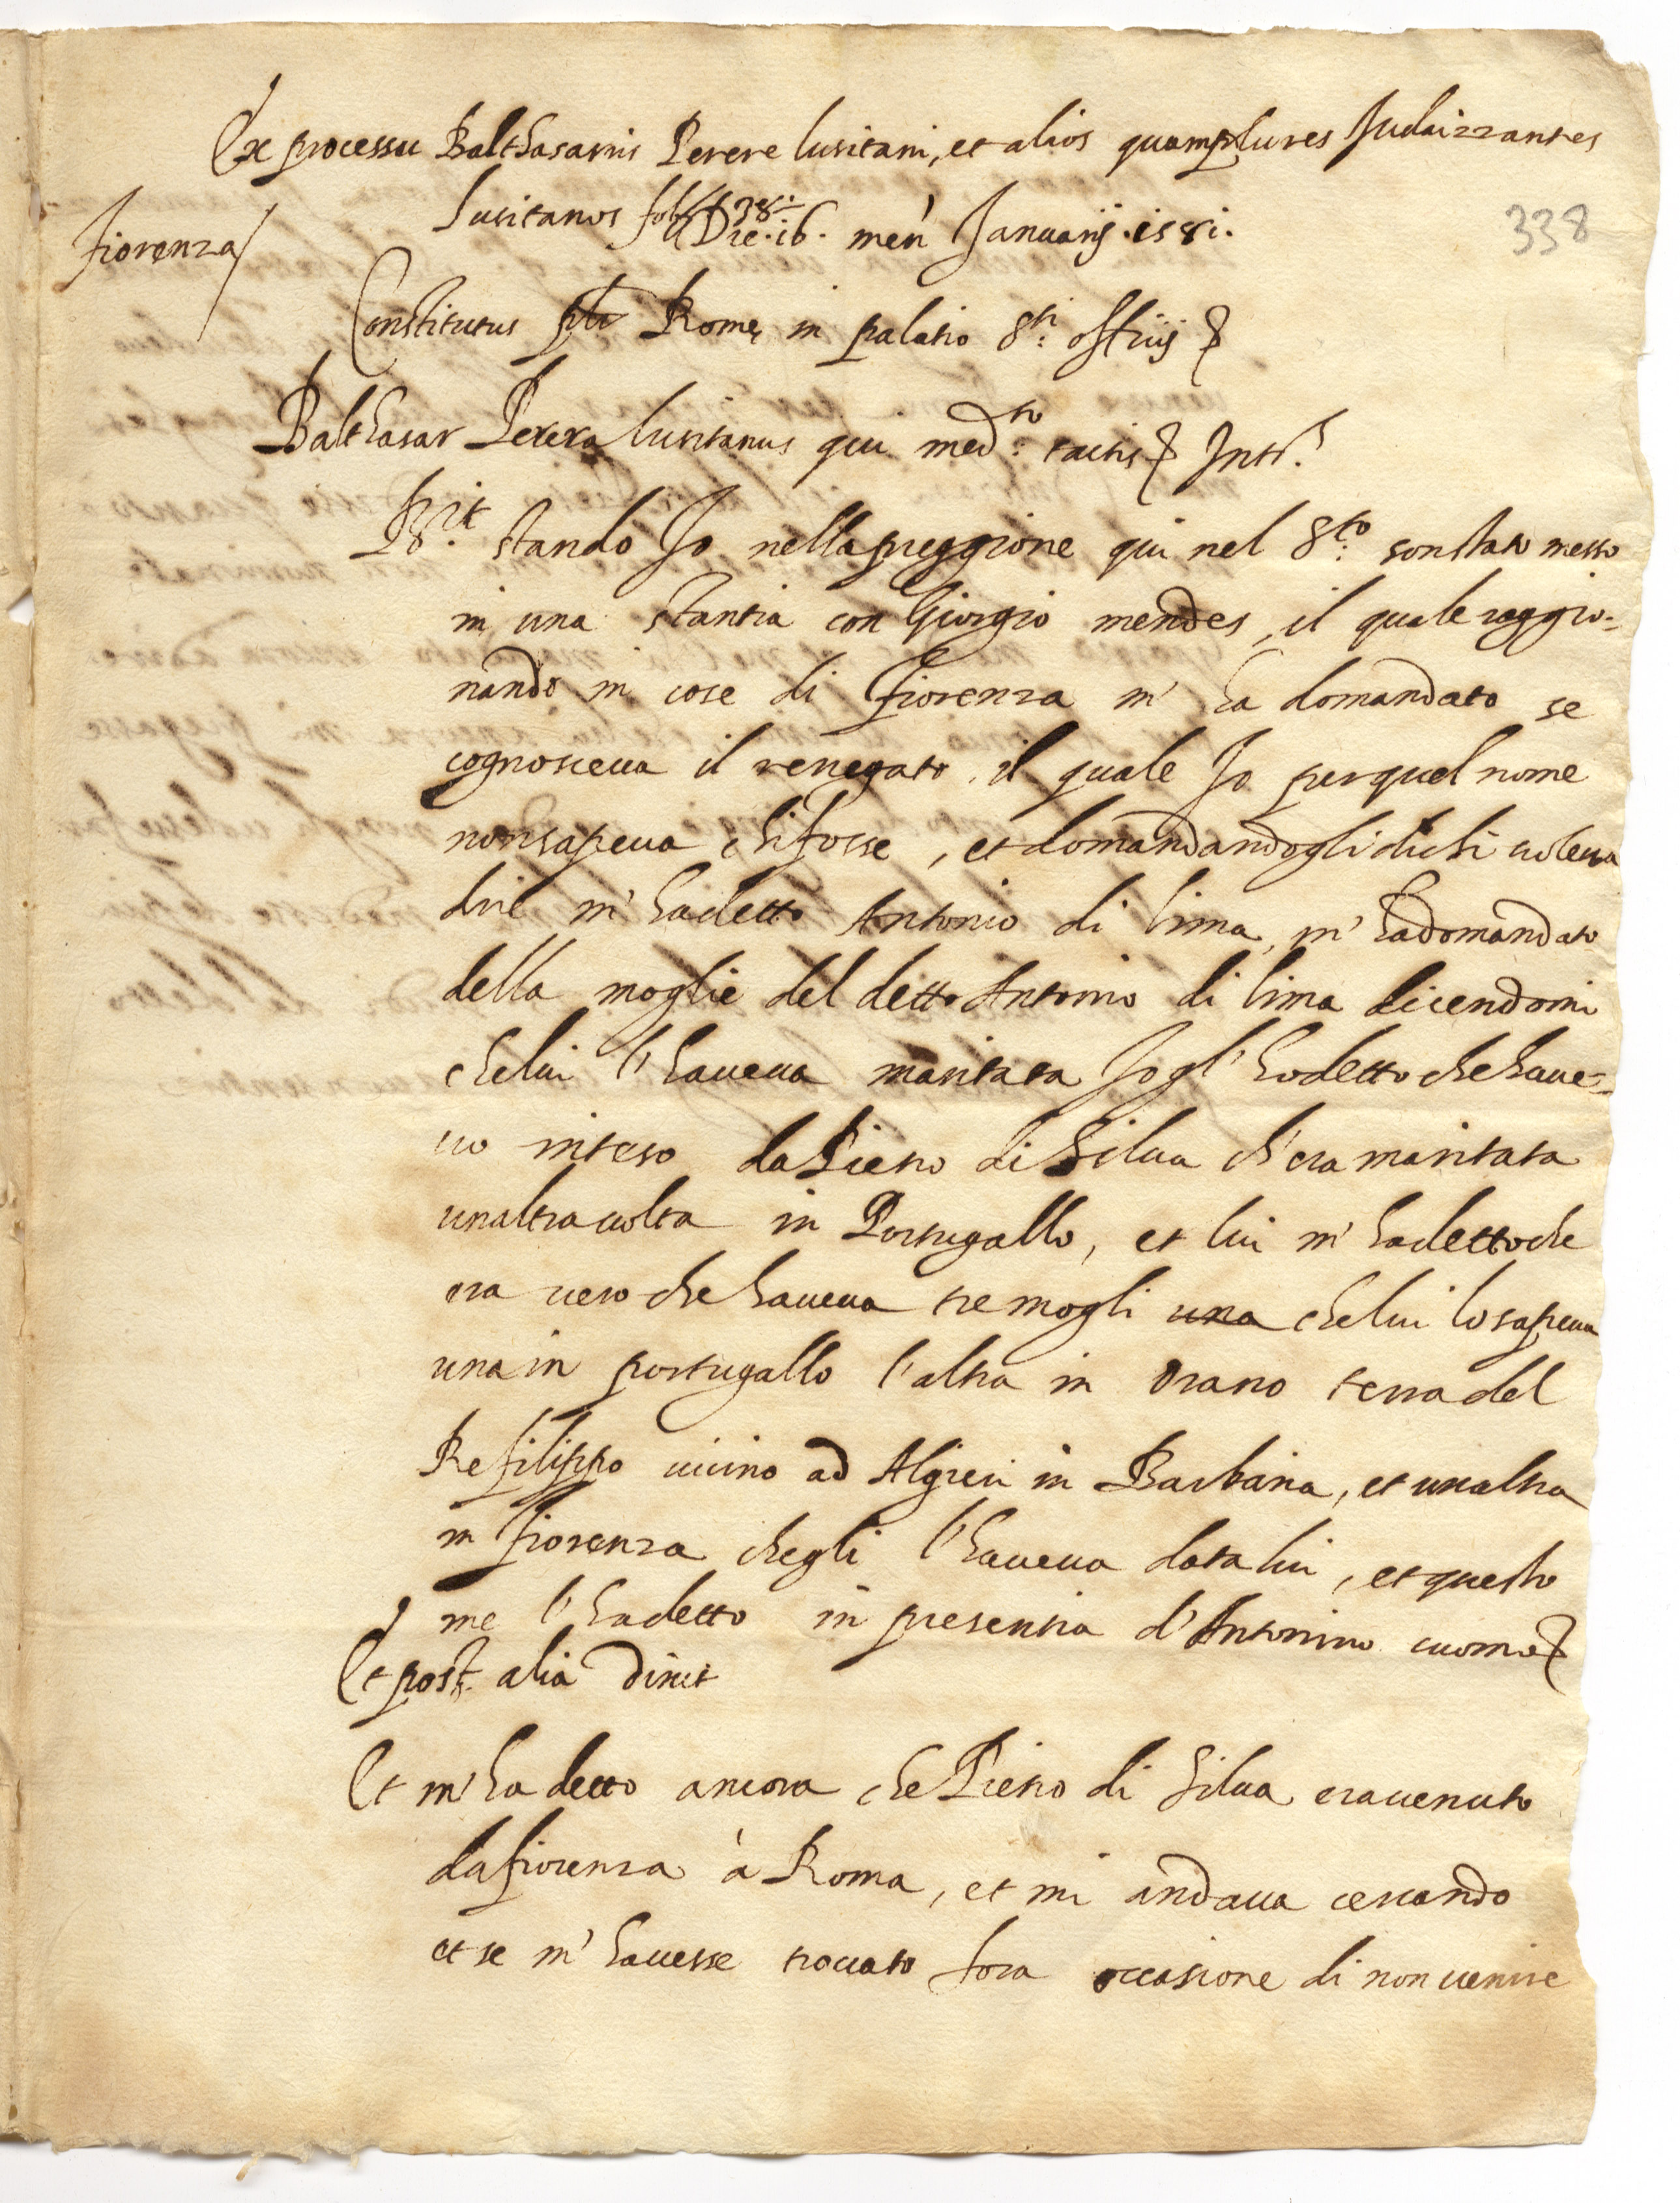 Ex processu Balthasaris Perere lusitani, et alios quamplures Judaizzantes
lusitanos fol. 38.
Die .16. men Januarij .1581.
Fiorenza
338
Constitutus Rome in palatio S.ti offitij
Balthasar Perera lusitanus qui med.to tactis Intr.
R.it stando Jo nella preggione qui nel S.to son stato messo
in una stantia con Giorgio mendes, il quale raggio-
nando in cose di fiorenza m' ha domandato se
cognosceua il renegato, il quale Jo per quel nome
non sapeua chi fosse, et domandandogli di chi uoleua
dire m' ha detto Antonio di lima, m' ha domandato
della moglie del detto Antonio di lima dicendomi
che lui l' haueua maritata Jo gl' ho detto che haue-
uo inteso da Pietro di Silua ch' era maritata
unaltra uolta in Portugallo, et lui m' ha detto che
era uero che haueua tre mogli una che lui lo sapeua
una in portugallo l'altra in Orano terra del
Re filippo uicino ad Algieri in Barbaria, et unaltra
in fiorenza che gli l' haueua data lui, et questo
me l' ha detto in presentia d' Antonino
Et post alia dixit
Et m' ha detto ancora che Pietro di Silua era uenuto
da fiorenza à Roma, et mi andaua cercando
et se m' hauesse trouato fora occasione di non uenire